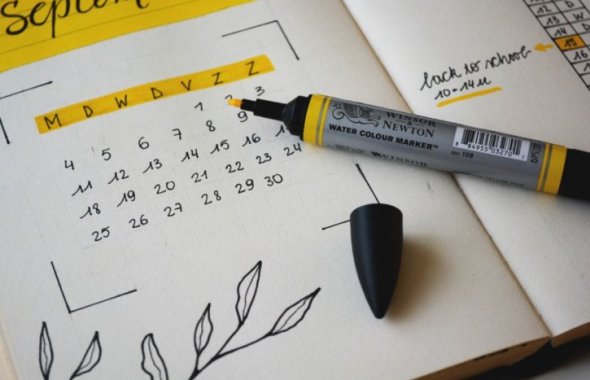 Septem
M D W D V Z Z
1 2 3
4 5 6 7 8 9
11 12 13 14 15 16
18 19 20 21 22 23 24
25 26 27 28 29 30
WINSOR
& NEWTON
WATER COLOUR MARKER™
WINSOR
back to school
10-14u
13 W
14 D
15
16